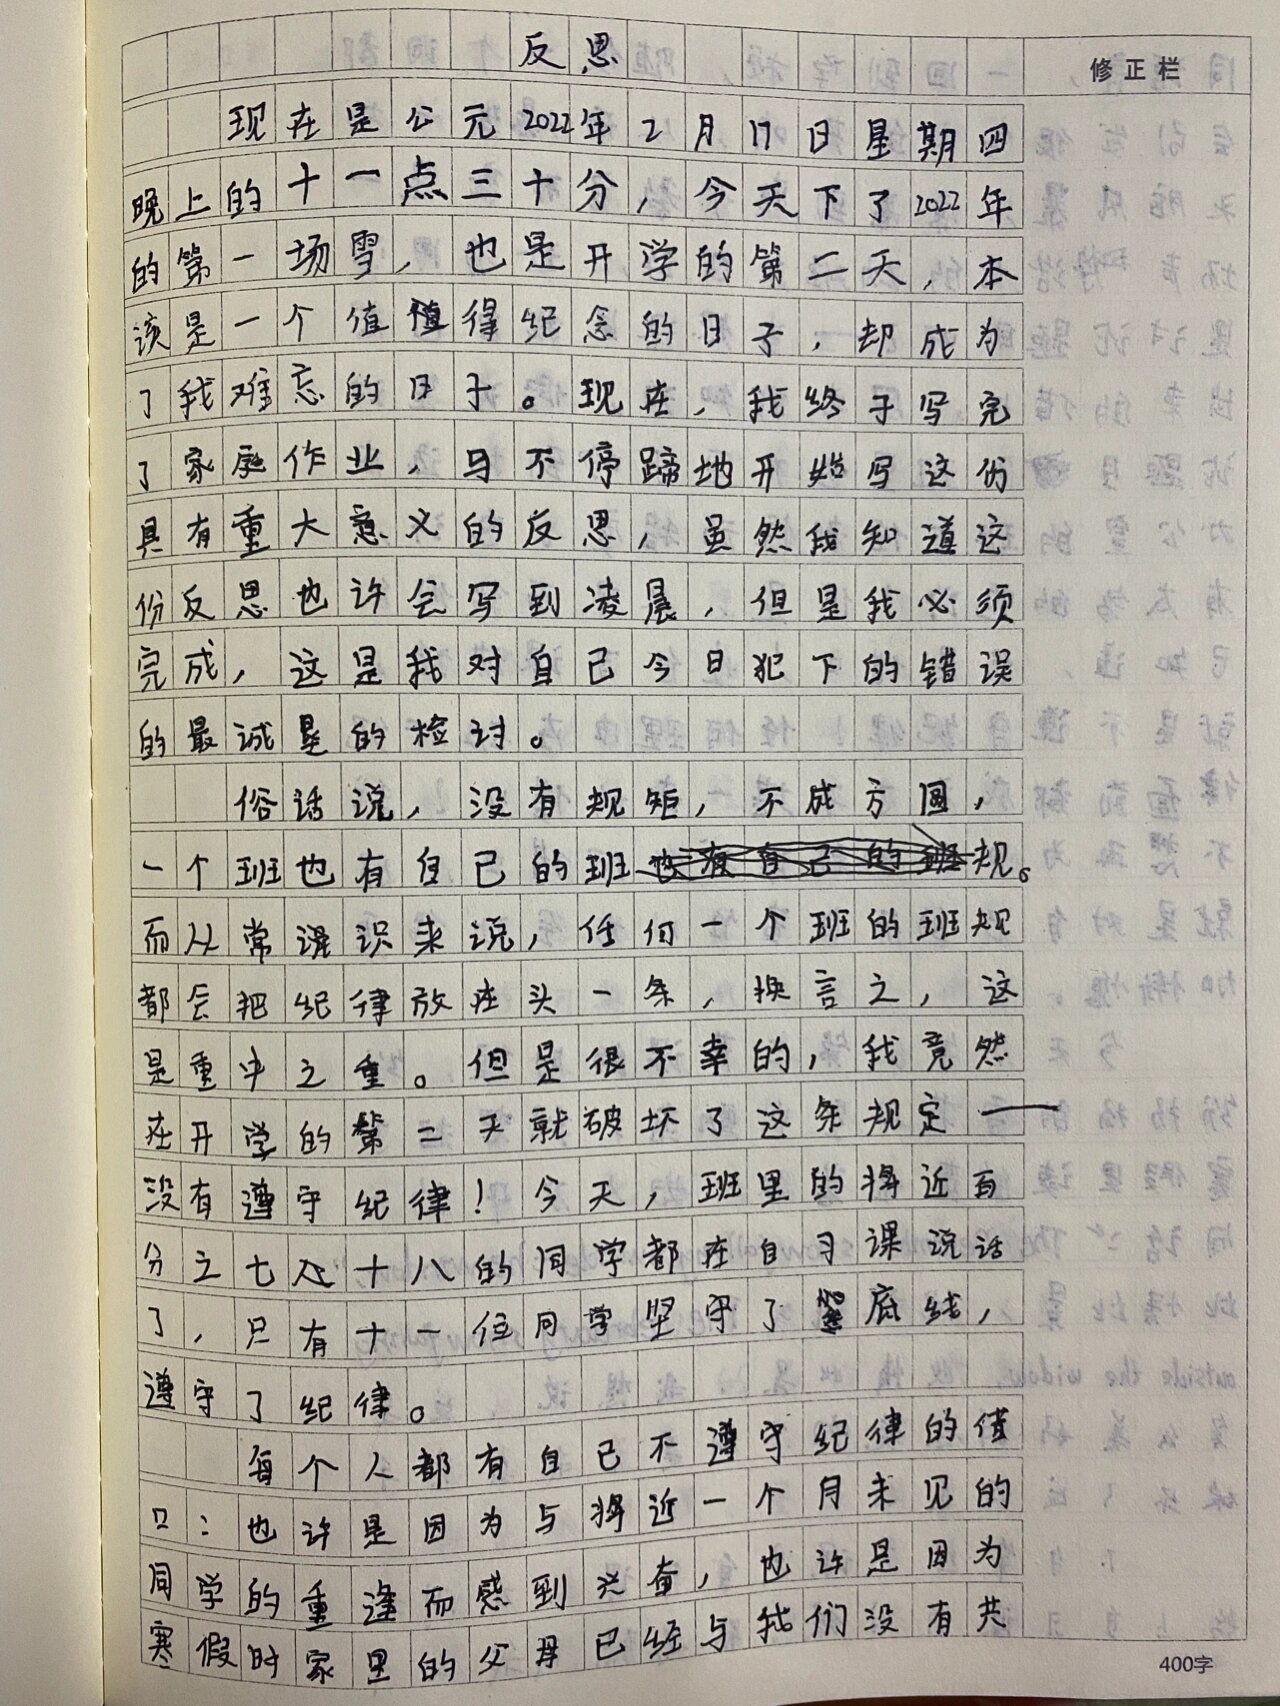 反思
修正栏
现在是公元2022年2月17日星期四
晚上的十一点三十分，今天下了2022年
的第一场雪，也是开学的第二天，本
该是一个值值得纪念的日子，却成为
了我难忘的日子。现在，我终于写完
了家庭作业，马不停蹄地开始写这份
具有重大意义的反思，虽然我知道这
份反思也许会写到凌晨，但是我必须
完成，这是我对自己今日犯下的错误
的最诚恳的检讨。
俗话说，没有规矩，不成方圆，
一个班也有自己的班规。
而从常识来说，任何一个班的班规
都会把纪律放在头一条，换言之，这
是重中之重。但是很不幸的，我竟然
在开学的第二天就破坏了这条规定——
没有遵守纪律！今天，班里的将近百
分之七十八的同学都在自习课说话
了，只有十一位同学坚守了底线，
遵守了纪律。
每个人都有自己不遵守纪律的借
口：也许是因为与将近一个月未见的
同学的重逢而感到兴奋，也许是因为
寒假时家里的父母已经与我们没有共
400字